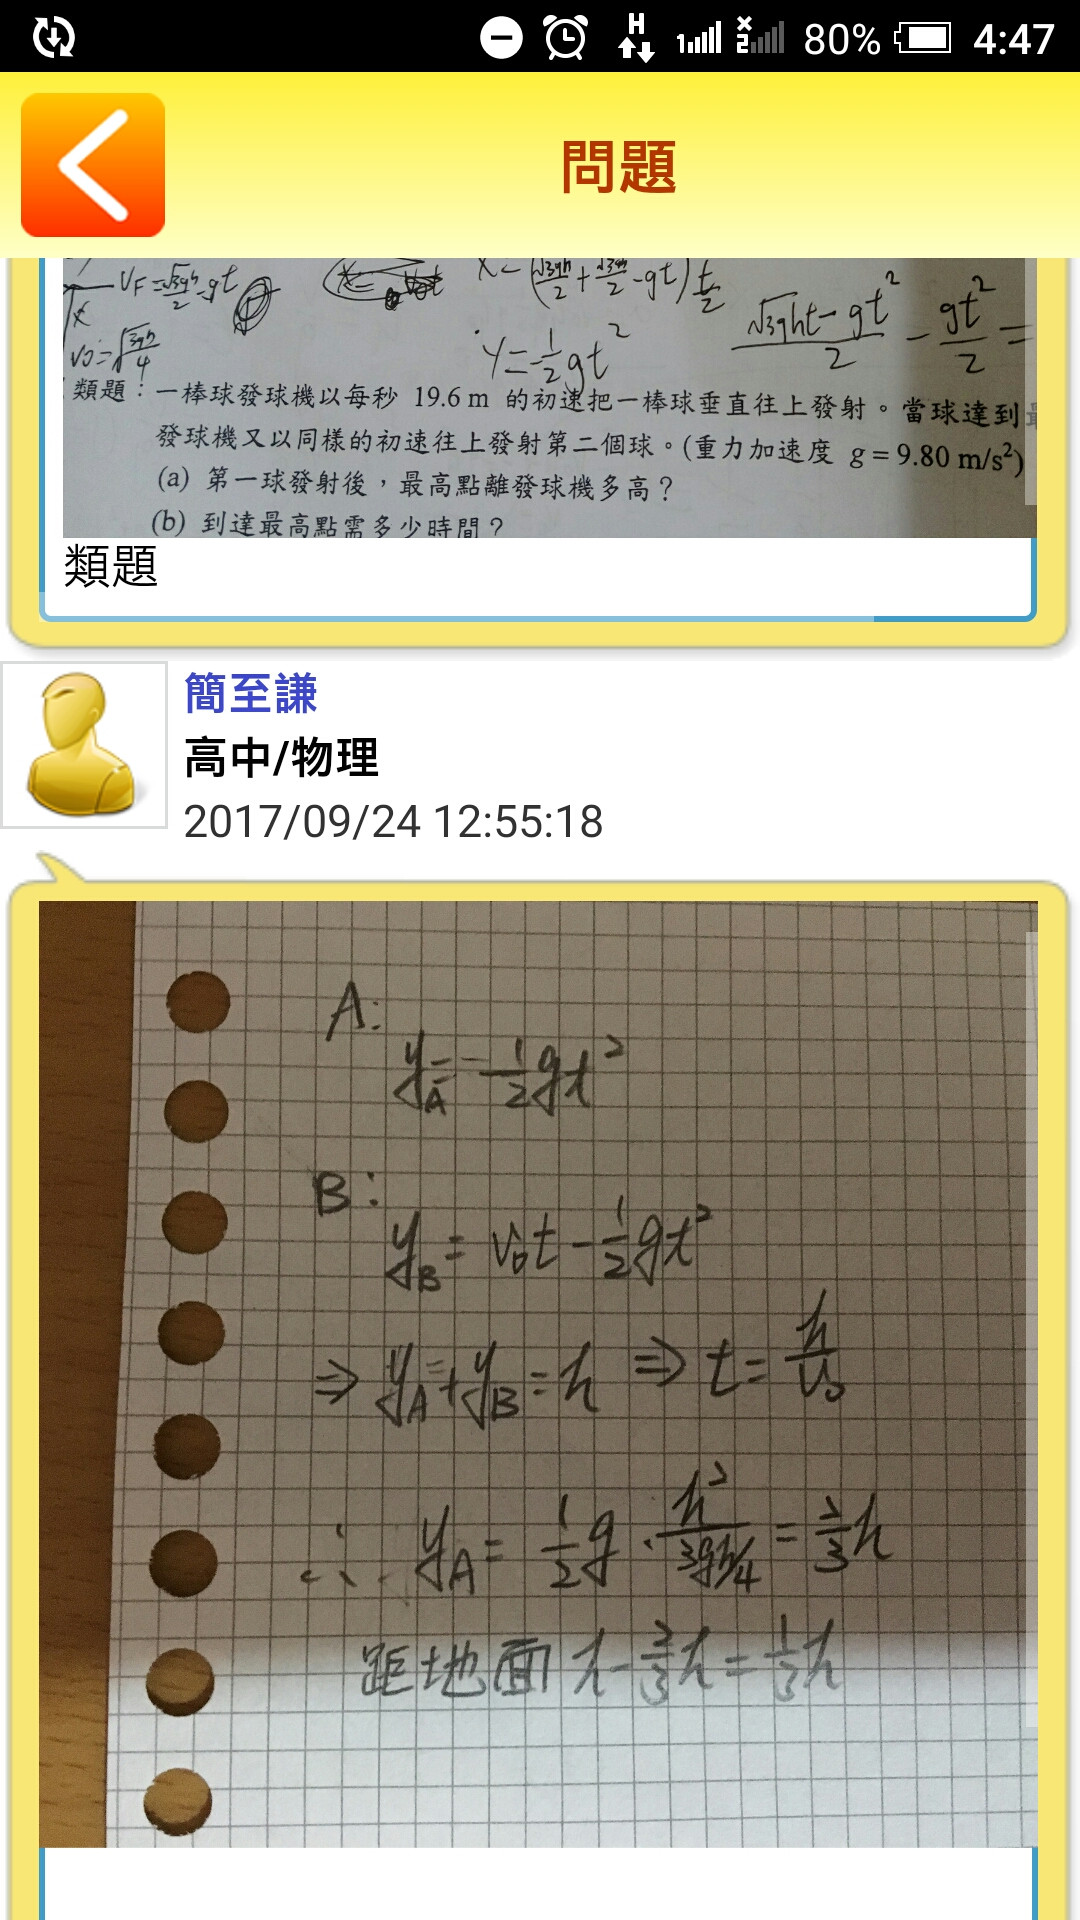 80% 4:47
問題
V_F = √3gh/2 - gt
x = (√3gh/2 + √3gh/2 - gt) t/2
√3ght - gt²/2 - gt²/2 =
v₀ = √3gh/4
y = -1/2 gt²
類題：一棒球發球機以每秒 19.6 m 的初速把一棒球垂直往上發射。當球達到
發球機又以同樣的初速往上發射第二個球。(重力加速度 g = 9.80 m/s²)
(a) 第一球發射後，最高點離發球機多高？
(b) 到達最高點需多少時間？
類題
簡至謙
高中/物理
2017/09/24 12:55:18
A:
y_A = -1/2 gt²
B:
y_B = v₀t - 1/2 gt²
⇒ y_A + y_B = h ⇒ t = h/v₀
∴ y_A = 1/2 g · h²/(3gh/4) = 2/3 h
距地面 h - 2/3 h = 1/3 h